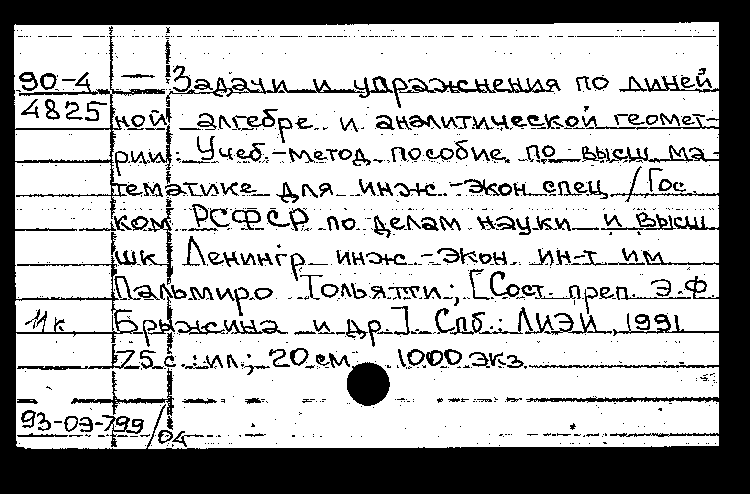 90-4 — Задачи и упражнения по линей
4825 ной алгебре и аналитической геомет-
рии: Учеб.-метод. пособие по высш ма-
тематике для инж.-экон спец / Гос.
ком РСФСР по делам науки и высш
шк Ленингр инж.-экон. ин-т им
Пальмиро Тольятти; [Сост. преп. Э.Ф.
Ик. Брыжина и др.]. Спб.: ЛИЭИ, 1991
75 с.: ил.; 20 см 1000 экз
93-09-799/04